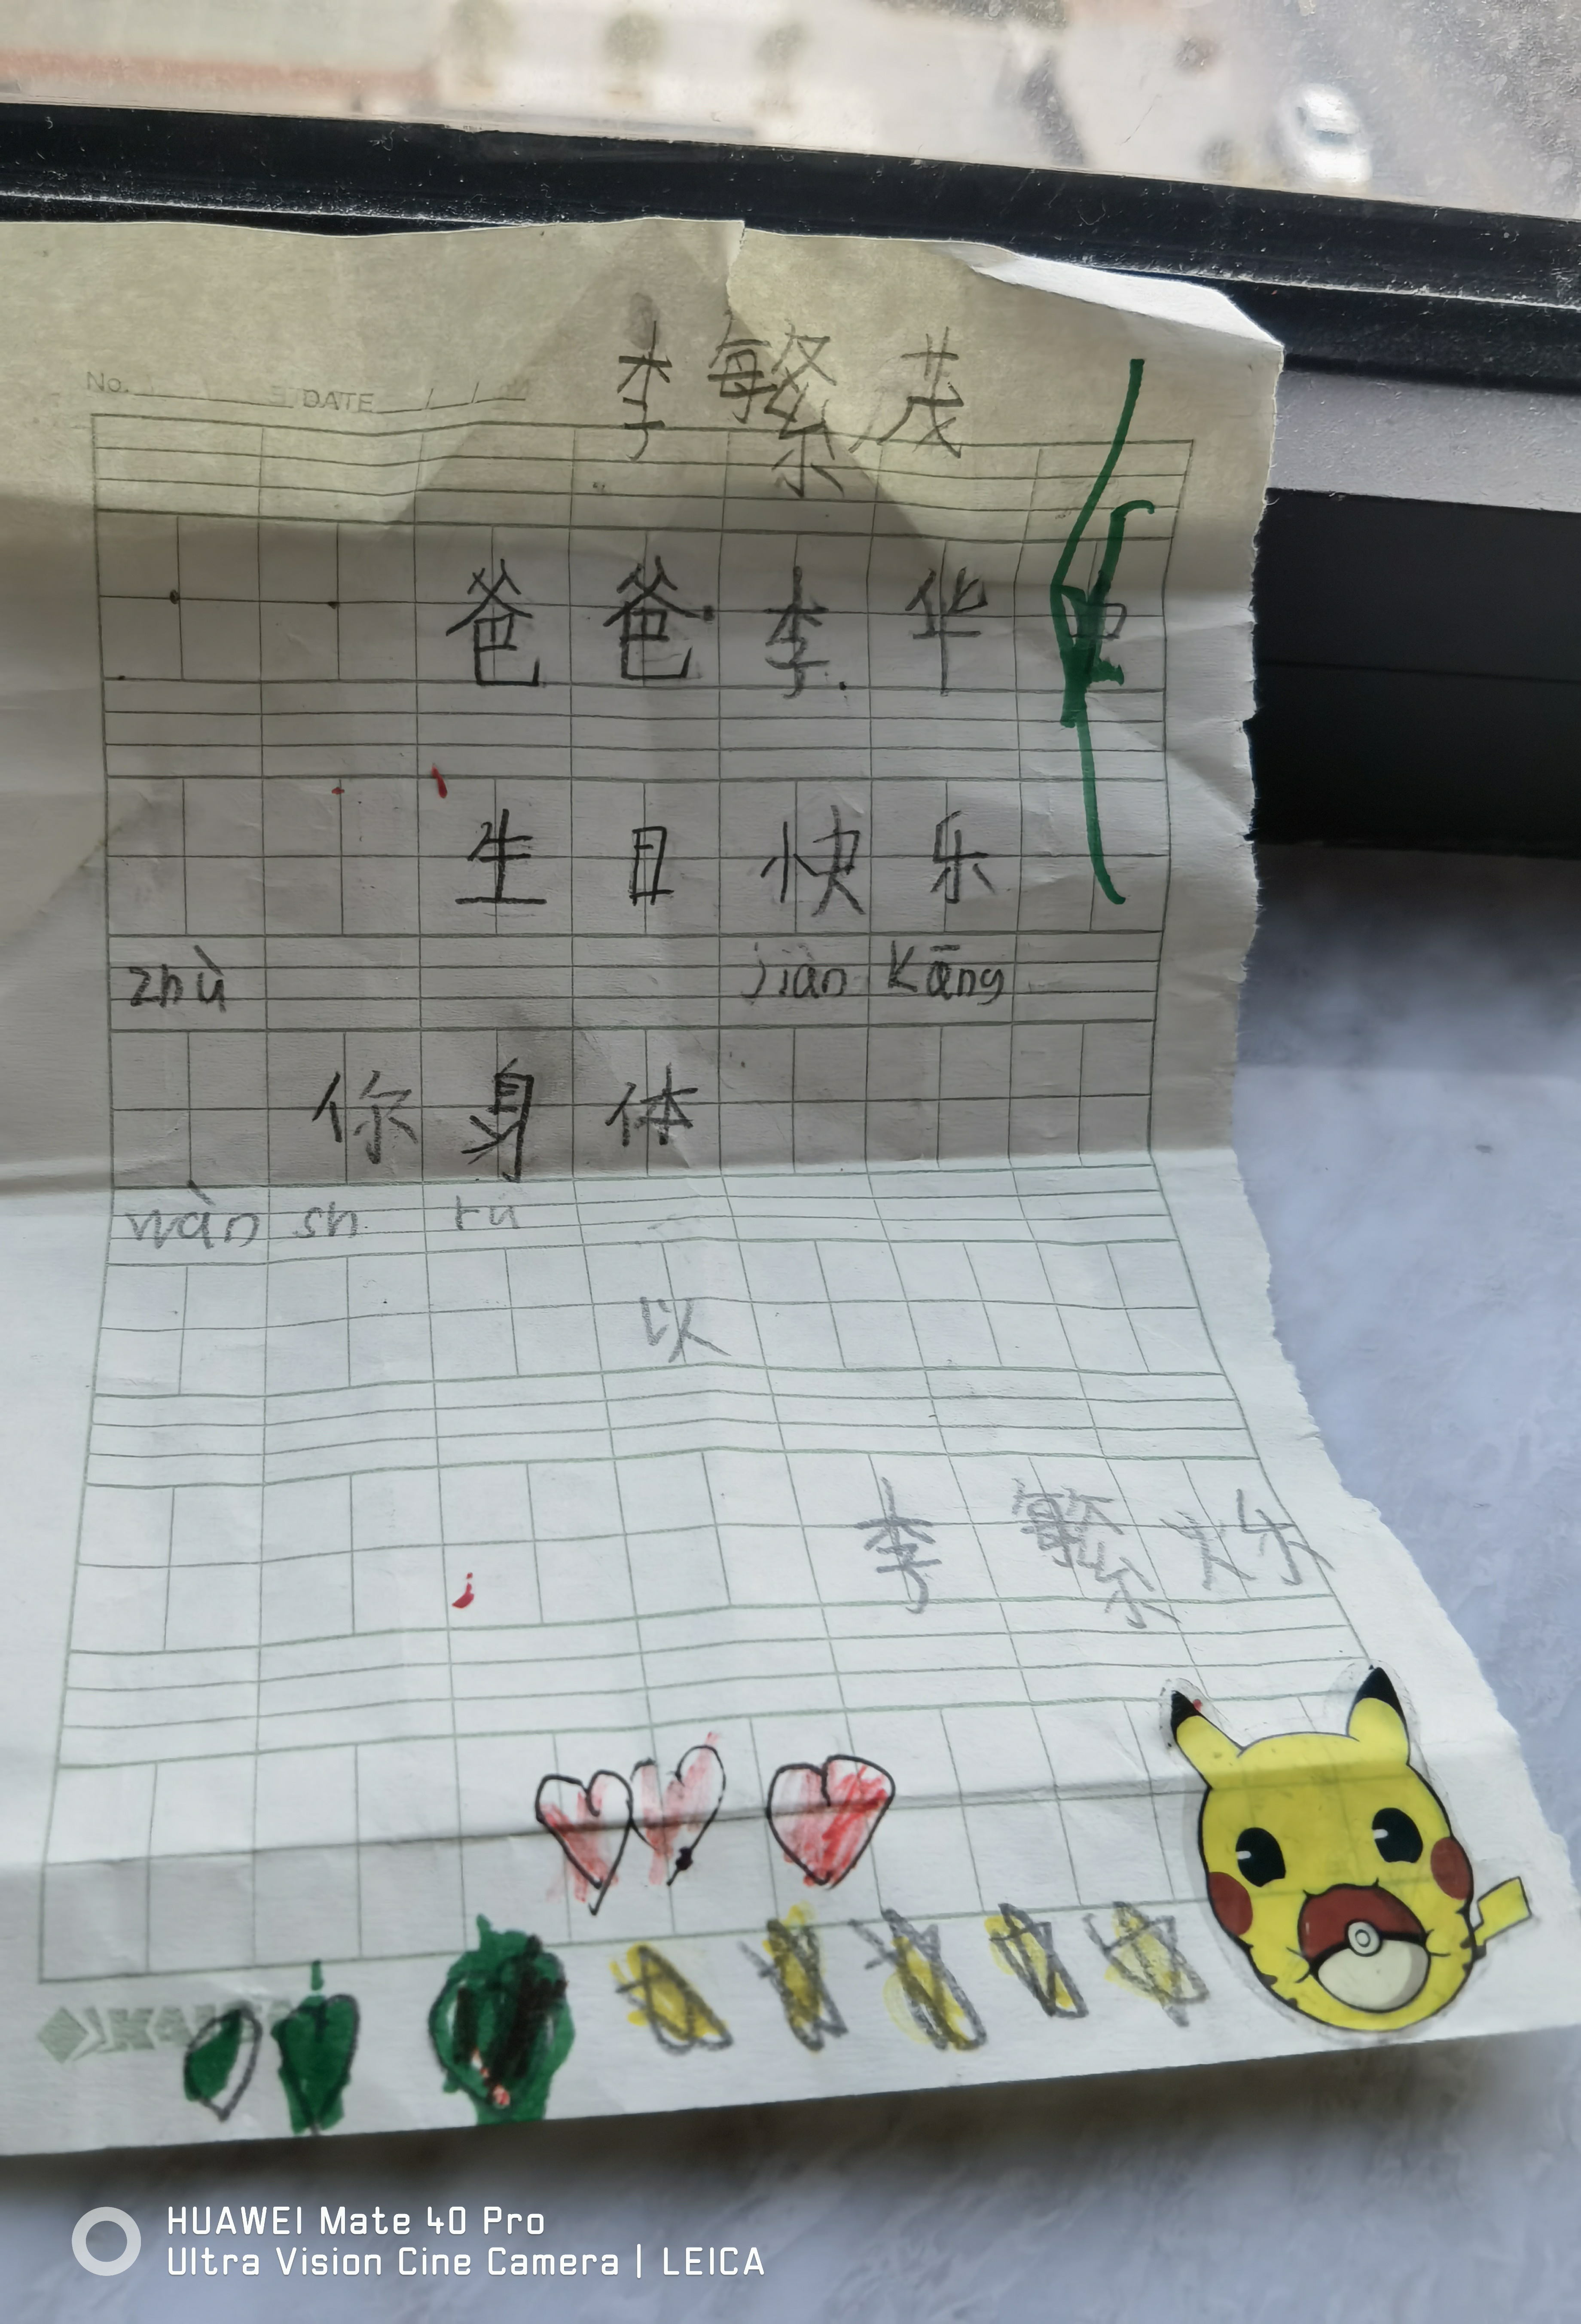 No. DATE / /
李繁茂
爸爸李华
生日快乐
zhù jiàn Kāng
你身体
wàn sh rú
以
李繁烁
HUAWEI Mate 40 Pro
Ultra Vision Cine Camera | LEICA